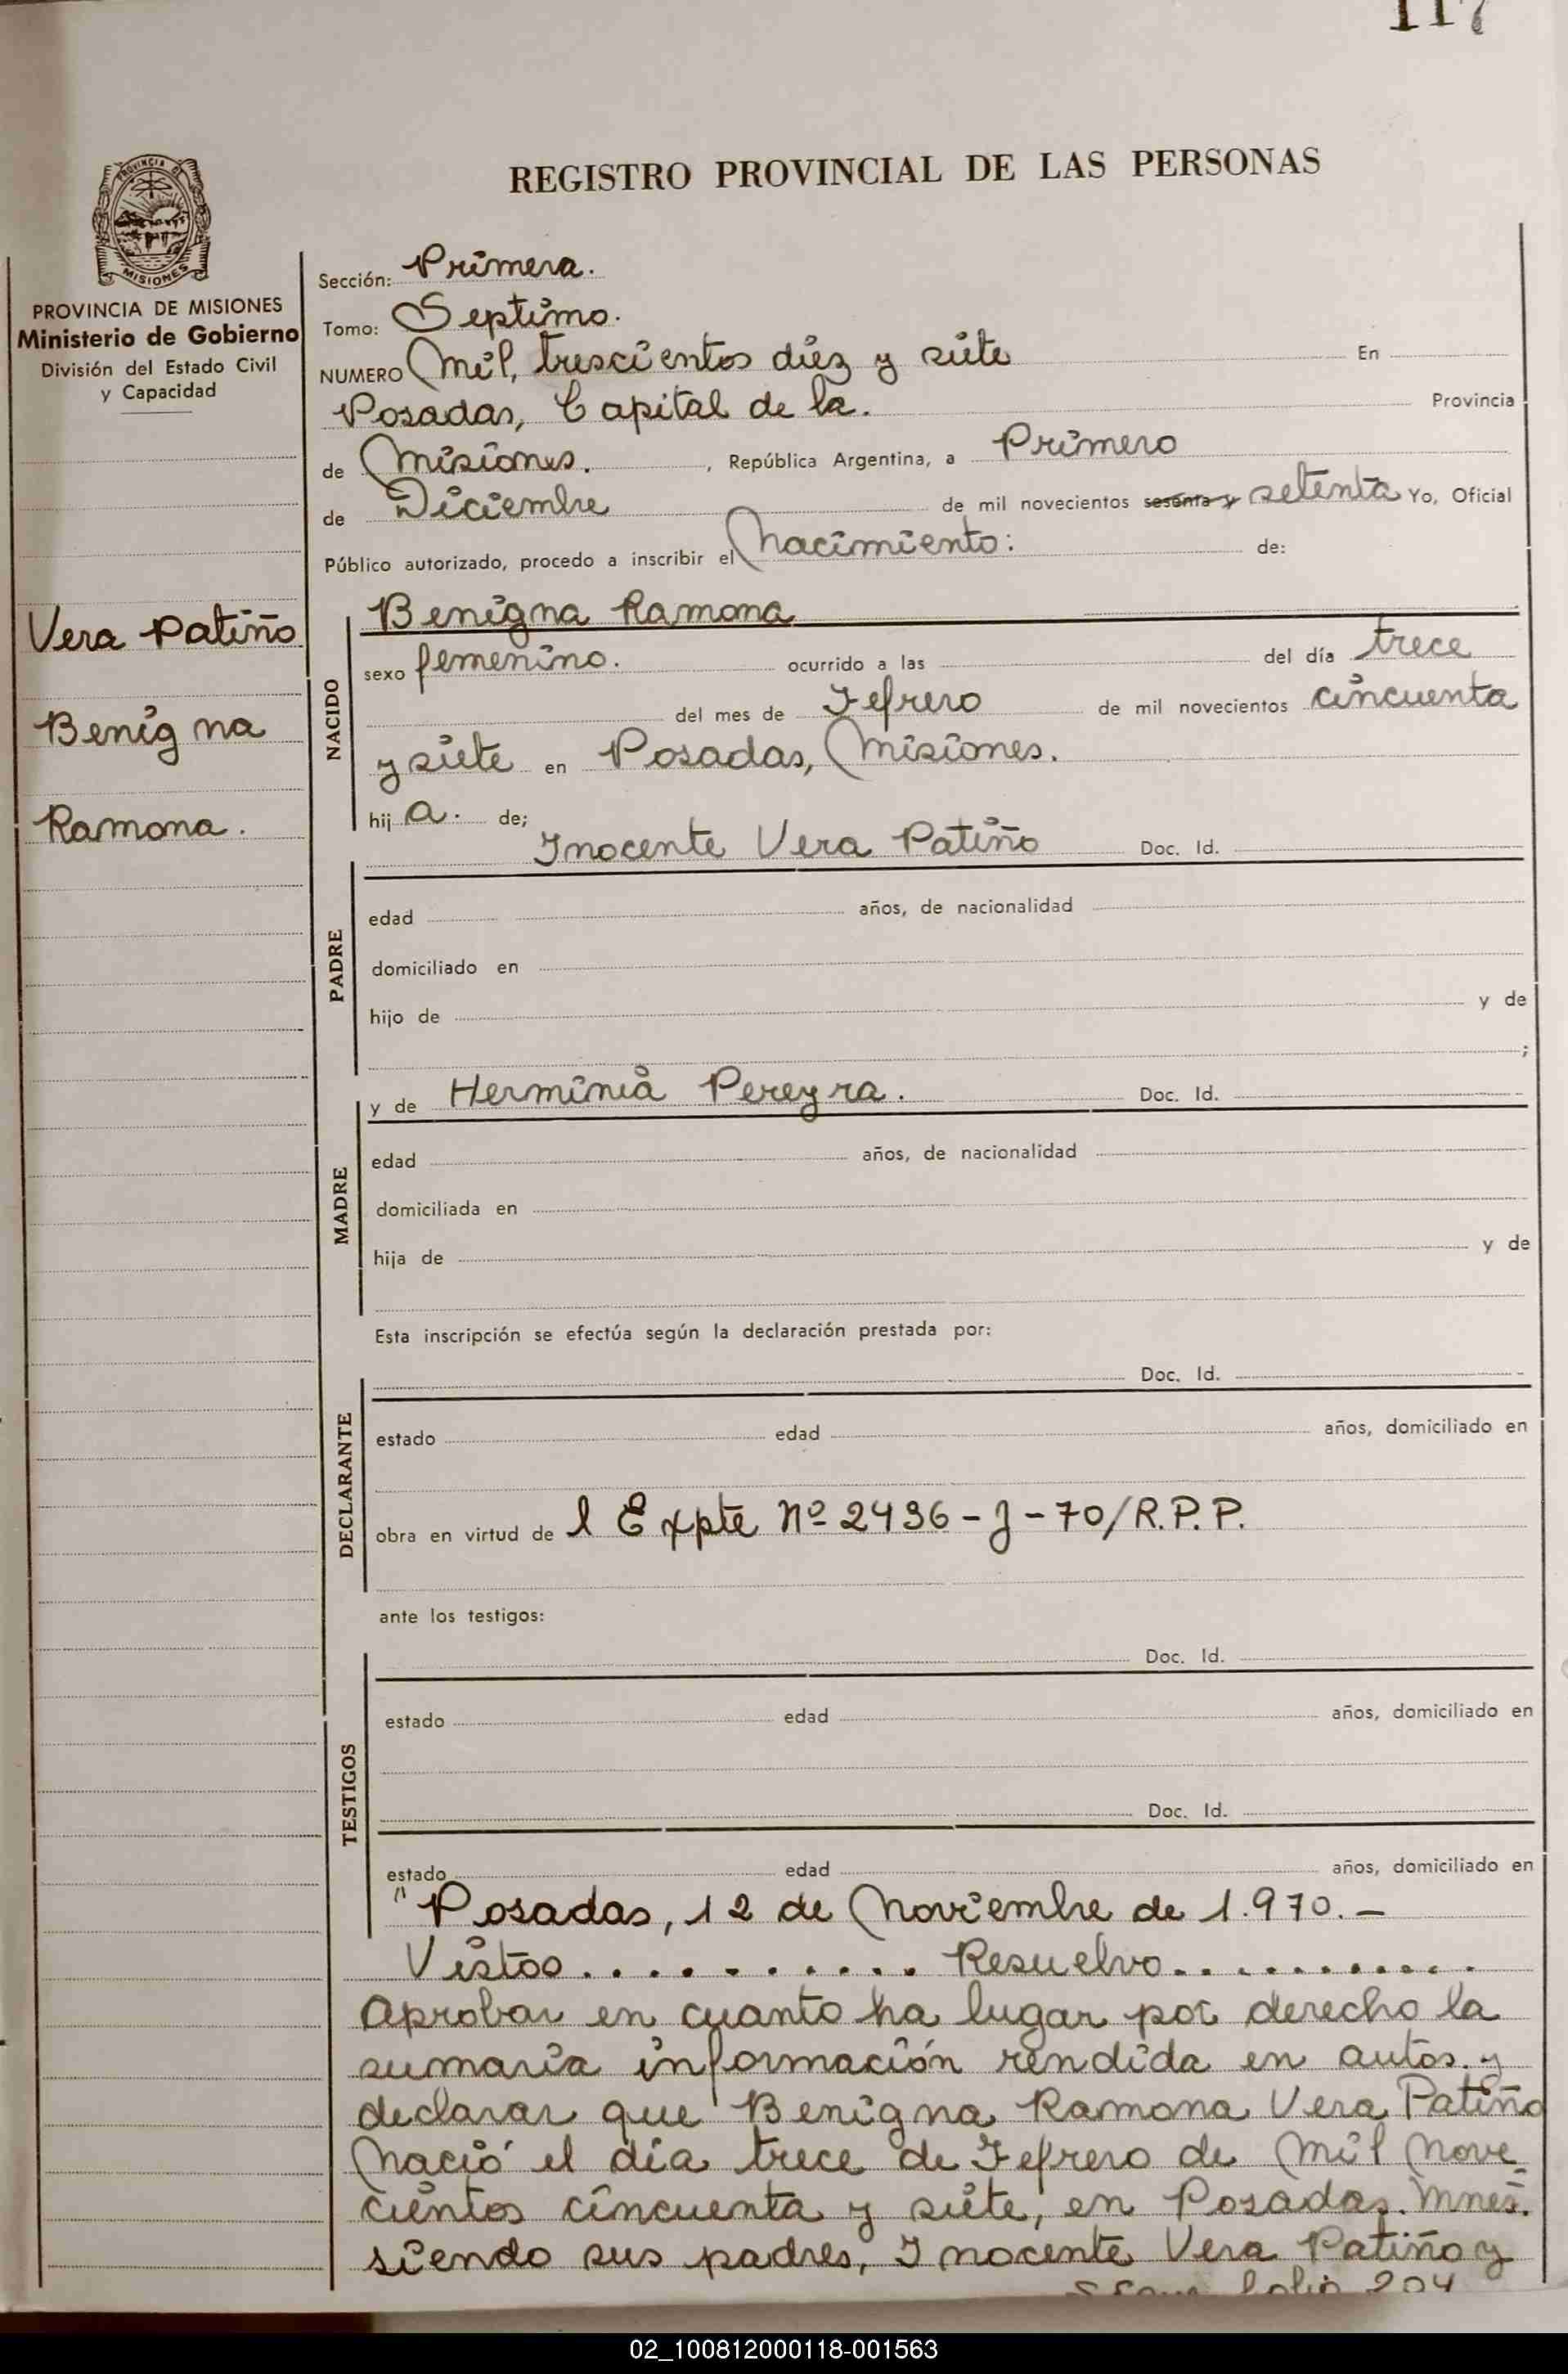 117
REGISTRO PROVINCIAL DE LAS PERSONAS
PROVINCIA DE MISIONES
Ministerio de Gobierno
División del Estado Civil
y Capacidad
Vera Patiño
Benigna
Ramona.
Sección: Primera.
Tomo: Septimo.
NUMERO Mil, trescientos diez y siete En
Posadas, Capital de la. Provincia
de Misiones. , República Argentina, a Primero
de Diciembre de mil novecientos sesenta y setenta Yo, Oficial
Público autorizado, procedo a inscribir el Nacimiento: de:
NACIDO
Benigna Ramona
sexo femenino. ocurrido a las del día trece
del mes de Febrero de mil novecientos cincuenta
y siete en Posadas, Misiones.
hij a. de;
PADRE
Inocente Vera Patiño Doc. Id.
edad años, de nacionalidad
domiciliado en
hijo de y de
;
MADRE
y de Herminia Pereyra. Doc. Id.
edad años, de nacionalidad
domiciliada en
hija de y de
Esta inscripción se efectúa según la declaración prestada por:
DECLARANTE
Doc. Id.
estado edad años, domiciliado en
obra en virtud de l Expte Nº 2436-J-70/R.P.P.
ante los testigos:
TESTIGOS
Doc. Id.
estado edad años, domiciliado en
Doc. Id.
estado edad años, domiciliado en
"Posadas, 12 de Noviembre de 1.970.-
Vistos........... Resuelvo...........
Aprobar en cuanto ha lugar por derecho la
sumaria información rendida en autos y
declarar que Benigna Ramona Vera Patiño
Nació el día trece de Febrero de Mil Nove
cientos cincuenta y siete, en Posadas. Mnes.
siendo sus padres, Inocente Vera Patiño y
folio 204
02_100812000118-001563